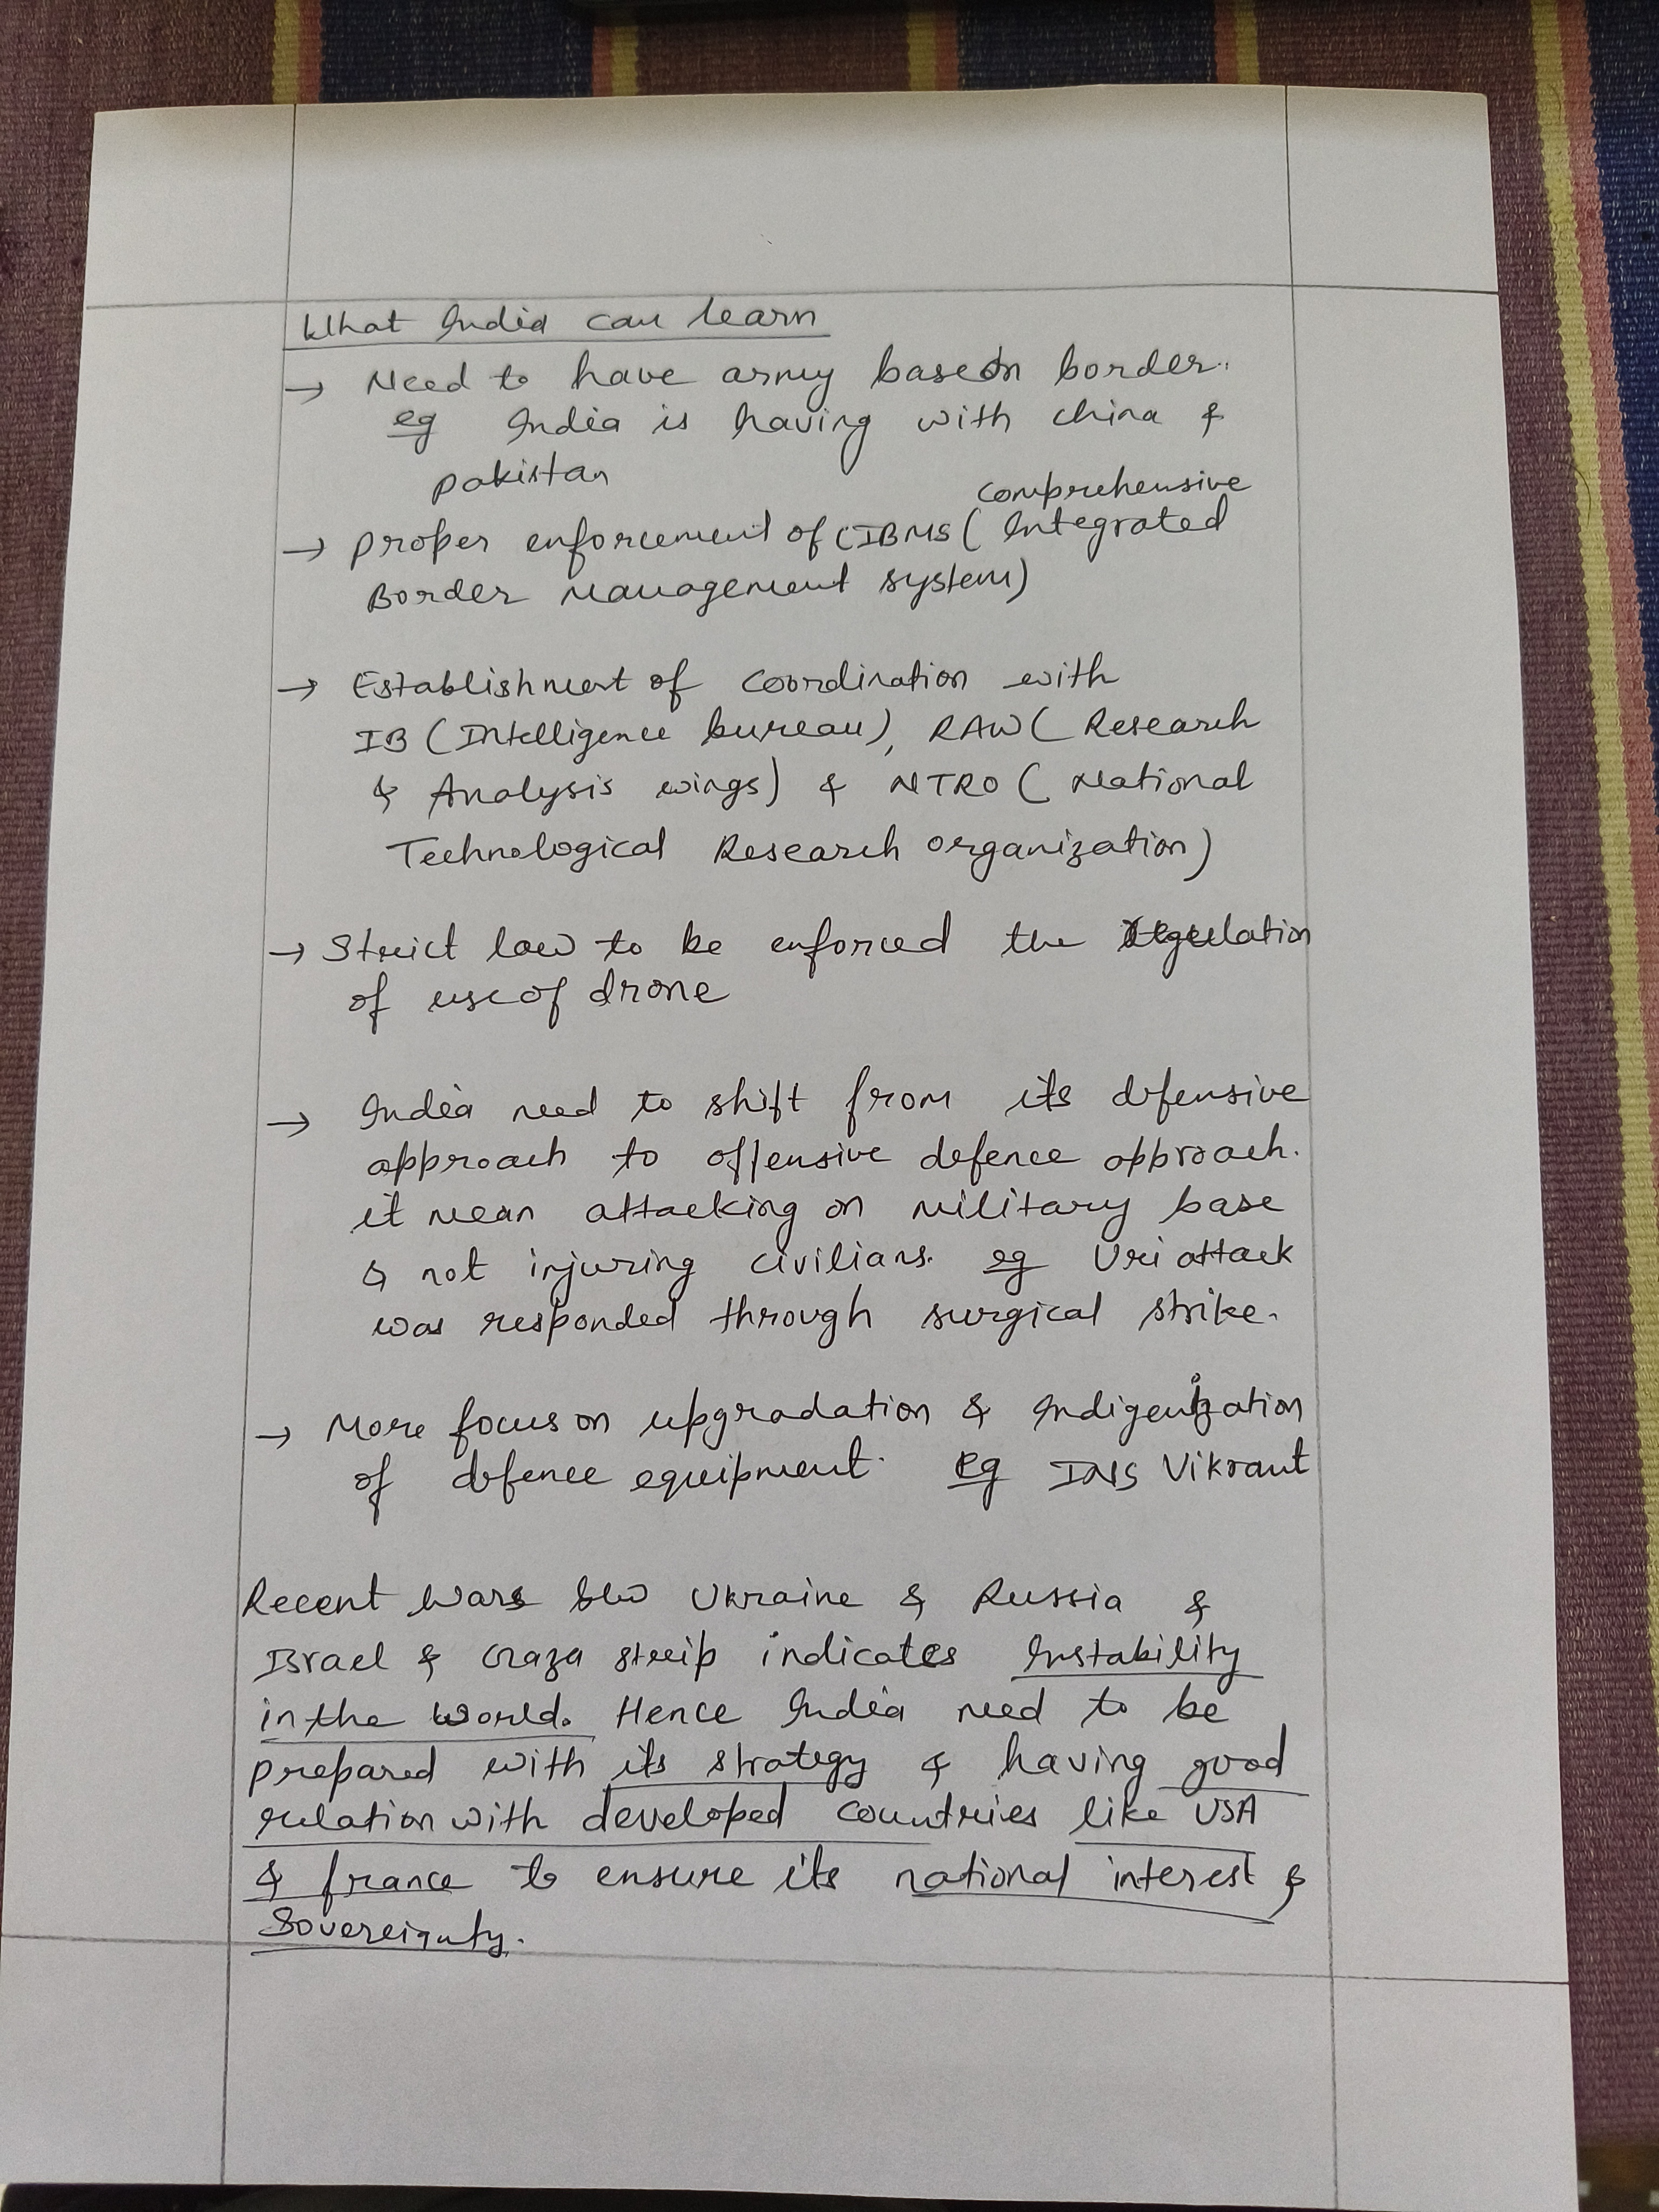 What India can learn
→ Need to have army base on border.
eg India is having with china &
pakistan
comprehensive
→ proper enforcement of CIBMS ( Integrated
Border Management system)
→ Establishment of coordination with
IB (Intelligence bureau), RAW ( Research
& Analysis wings) & NTRO ( National
Technological Research organization)
→ Strict law to be enforced the regulation
of use of drone
→ India need to shift from its defensive
approach to offensive defence approach.
it mean attacking on military base
& not injuring civilians. eg Uri attack
was responded through surgical strike.
→ More focus on upgradation & Indigenization
of defence equipment. eg INS Vikrant
Recent Wars b/w Ukraine & Russia &
Israel & Gaza strip indicates Instability
in the world. Hence India need to be
prepared with its strategy & having good
relation with developed countries like USA
& france to ensure its national interest &
Sovereignty.